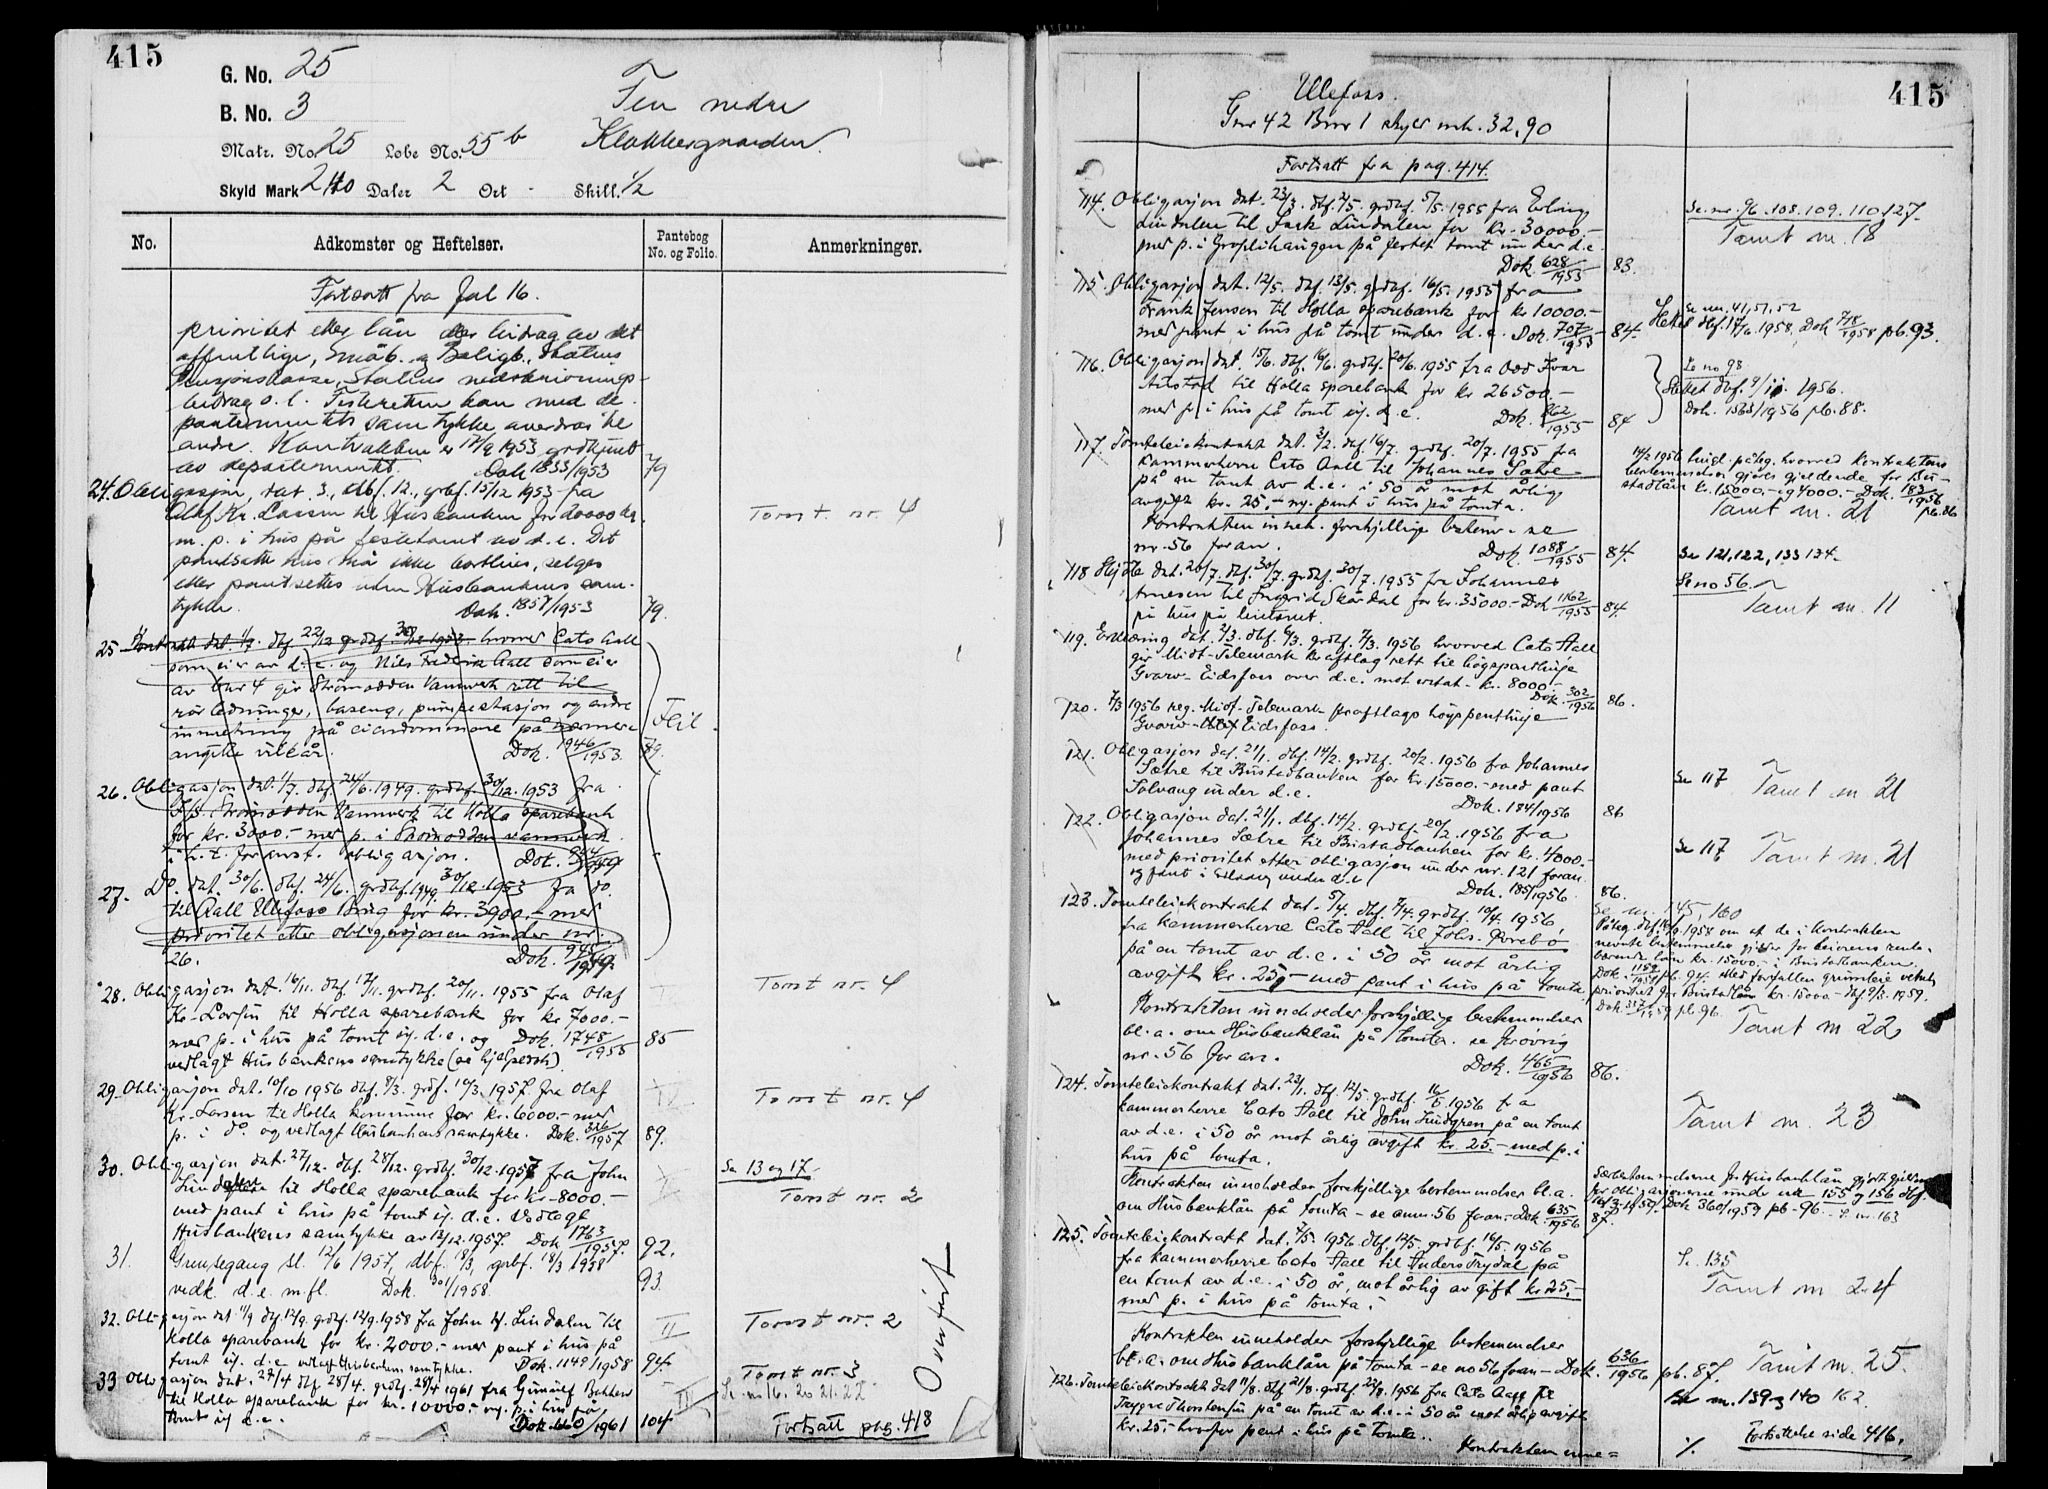 415
G. No. 25
B. No. 3
Fen nedre
Matr. No. 25 Løbe No. 55 b
Skyld Mark 2,40 Daler 2 Ort - Skill. 1/2
No.
Adkomster og Heftelser.
Pantebog No. og Folio.
Anmerkninger.
Fortsatt fra fol 16.
prioritet etter lån eller bidrag av det
offentlige, Småb. og Boligb., Statens
Pensjonskasse, Statens nedskrivnings-
bidrag o. l. Festeretten kan med de
panterettens samtykke overdras til
andre. Kontrakten er 19/9 1953 godkjent
av departementet. Dok 1833/1953 79
24. Obligasjon, dat. 3., dbf. 12., grbf. 15/12 1953 fra
Olaf Kr. Larsen til Husbanken for 20000 kr.
m. p. i hus på festetomt av d. e. Det
Tomt. nr. 4
pantsatte hus må ikke bortleies, selges
eller pantsettes uten Husbankens sam-
tykke. Dok. 1857/1953 79.
25 Kontrakt dat. 1/7. dbf. 22/12 grdbf. 30/12 1953 hvorved Cato Aall
som eier av d. e. og Nils Fredrik Aall som eier
av bnr 4 gir Strømodden Vannverk rett til
rørledninger, baseng, pumpestasjon og andre
innretning på eiendommene på nærmere
Feil.
angitte vilkår. Dok. 1946/1953. 79.
26. Obligasjon dat. 1/7. dbf. 24/6. 1949. grdbf. 30/12. 1953 fra
I/S. Strømodden Vannverk til Holla sparebank
for kr. 3000.- mer p. i Strømodden vannverk
i h. t. foranst. obligasjon. Dok. 944/1949
27. Do. dat. 30/6. dbf. 24/6. grdbf. 1949. 30/12. 1953 fra do.
til Aall Ulefoss Brug for kr. 3900.- mer
prioritet etter obligasjonen under nr.
26. Dok. 945/1949.
28. Obligasjon dat. 16/11. dbf. 17/11. grdbf. 20/11. 1955 fra Olaf
Kr. Larsen til Holla sparebank for kr 7000.-
Tomt nr. 4
mer p. i hus på tomt u/ d. e. og Dok. 1748/1955 85
vedlagt Husbankens samtykke (se hjelpedok).
29. Obligasjon dat. 10/10 1956 dbf. 8/3. grdf. 10/3. 1957 fra Olaf
Kr. Larsen til Holla kommune for kr. 6000.- mer
Tomt nr. 4
p. i do. og vedlagt Husbankens samtykke. Dok. 326/1957 89.
30. Obligasjon dat. 27/12. dbf. 28/12. grdbf. 30/12. 1957 fra John
Lindalen til Holla sparebank for kr. 8000.-
Se 13 og 17
Tomt nr. 2
med pant i hus på tomt u/ d. e. Vedlagt
Husbankens samtykke av 12/12. 1957. Dok 1763/1957. 92.
31. Grensegang sl. 12/6 1957, dbf. 18/3, grbf. 18/3 1958
vedk d. e. m. fl. Dok. 301/1958. 93.
32. Obligasjon dat. 11/9 dbf. 12/9. grdbf. 12/9. 1958 fra John M. Lindalen til
Holla sparebank for kr. 2000.- mer pant i hus på
Tomt nr. 2
tomt u/. d. e. vedlagt Husbankens samtykke. Dok. 1149/1958 94.
33 Obligasjon dat. 27/4 dbf 28/4. grdbf. 28/4 1961 fra Gunnulf Bakken
til Holla sparebank for kr. 10000.- og p. i hus på
Tomt nr. 3
Se nr. 16. 20 21. 22
tomt u/ d. e. Dok. 660/1961 104
Overført
Fortsatt pag. 418
415
Ulefoss.
Gnr 42 Bnr 1 skyld mk. 32,90
Fortsatt fra pag. 414.
114. Obligasjon dat. 23/3. dbf. 2/5. grdbf. 5/5. 1955 fra Erling
Lindalen til Isak Lindalen for kr. 30000.-
Se nr. 96. 108. 109. 110. 127.
Tomt nr. 18
mer p. i Groplihaugen på festet tomt under d. e.
Dok 628/1953 83.
115. Obligasjon dat. 12/5. dbf. 13/5. grdbf. 16/5. 1955 fra
Frank Jensen til Holla sparebank for kr 10000.-
Se nr. 41, 51, 52
mer pant i hus på tomt under d. e. Dok. 707/1955 84.
pb. 93.
116. Obligasjon dat. 15/6. dbf. 16/6. grdbf. 20/6. 1955 fra Odd Ivar
Aarstad til Holla sparebank for kr 26500.-
Se no 98
Slettet dbf. 9/11. 1956.
mer p. i hus på tomt u/. d. e. Dok. 862/1955 84
Dok. 1563/1956 pb. 88.
117. Tomteleiekontrakt dat. 3/2. dbf. 16/7. grdbf. 20/7. 1955 fra
kammerherre Cato Aall til Johannes Sætre
på en tomt av d. e. i 50 år mot årlig
avgift kr. 25.- og pant i hus på tomta.
14/2 1956 tingl. påteg. hvorved kontraktens
bestemmelser gjøres gjeldende for Bu-
stadlån kr. 15000.- og 4000.- Dok. 183/1956 pb. 86
Tomt nr. 21
Kontrakten inneh. forskjellige bestem.- se
nr. 56 foran. Dok. 1088/1955 84.
Se 121, 122, 133 134.
118 Skjøte dat. 20/7. dbf. 30/7. grdbf. 30/7. 1955 fra Johannes
Arnesen til Ingrid Skårdal for kr. 35000.- Dok 1162/1955 84.
på hus på leietomt.
Se no 56.
Tomt nr. 11
119. Erklæring dat. 2/3. dbf. 6/3. grdbf. 7/3. 1956 hvorved Cato Aall
gir Midt-Telemark Kraftlag rett til høgspentlinje
Gvarv - Eidsfoss over d. e. mot erstat.- kr. 8000.-
Dok. 302/1956 86.
120. 7/3 1956 reg. Midt-Telemark Kraftlags høgspentlinje
Gvarv - Eidsfoss.
121. Obligasjon dat. 21/1. dbf. 14/2. grdbf. 20/2. 1956 fra Johannes
Sætre til Bustadbanken for kr. 15000.- med pant
Solvang under d. e. Dok. 184/1956 86
Se 117 Tomt nr 21
122. Obligasjon dat. 21/1. dbf. 14/2. grdbf. 20/2. 1956 fra
Johannes Sætre til Bustadbanken for kr. 4000.-
med prioritet etter obligasjon under nr. 121 foran
og pant i Solvang under d. e. Dok. 185/1956 86.
Se 117 Tomt nr. 21
123. Tomteleiekontrakt dat. 5/4. dbf. 7/4. grdbf. 10/4. 1956
fra kammerherre Cato Aall til Johs. Prebø
på en tomt av d. e. i 50 år mot årlig
avgift kr. 25,- med pant i hus på tomta.
Se nr. 45, 160
1958 om at de i kontrakten
nevnte bestemmelser gjelder for
lån kr. 15000.- i Bustadbanken.
prioritet for Bustadlån kr. 15000.- dbf. 9/3. 1959.
Kontrakten inneholder forskjellige bestemmelser
bl. a. om Husbanklån på tomta. se forøvrig
nr. 56 foran. Dok. 465/1956 86.
Tomt nr 22
124. Tomteleiekontrakt dat. 23/1. dbf. 12/5. grdbf. 16/5 1956 fra
kammerherre Cato Aall til John Lindgren på en tomt
av d. e. i 50 år mot årlig avgift kr. 25.- med p. i
hus på tomta.
Tomt nr. 23
Kontrakten inneholder forskjellige bestemmelser bl. a.
om Husbanklån på tomta - se anm. 56 foran - Dok. 635/1956 87.
for obligasjonene under nr. 155 og 156 dbf.
Dok 360/1959 pb. 96. - Se nr. 163
125. Tomteleiekontrakt dat. 7/5. 1956 dbf 12/5. grdbf. 16/5. 1956
fra kammerherre Cato Aall til Anders Frydal på
en tomt av d. e. i 50 år, mot årlig avgift kr 25,-
mer p. i hus på tomta.
Se. 135
Tomt nr 24
Kontrakten inneholder forskjellige bestemmelser
bl. a. om Husbanklån på tomta - se no 56 foran - Dok. 636/1956 pb. 87.
Tomt nr. 25
126. Tomteleiekontrakt dat 11/8. dbf 21/8. grdbf. 22/8. 1956 fra Cato Aall til
Trygve Thorstensen på en tomt av d. e. i 50 år mot årlig avgift
Se nr. 139 og 140 162.
kr. 25,- hvorfor pant i hus på tomta.
Kontrakten inne= %
Fortsettelse side 416.